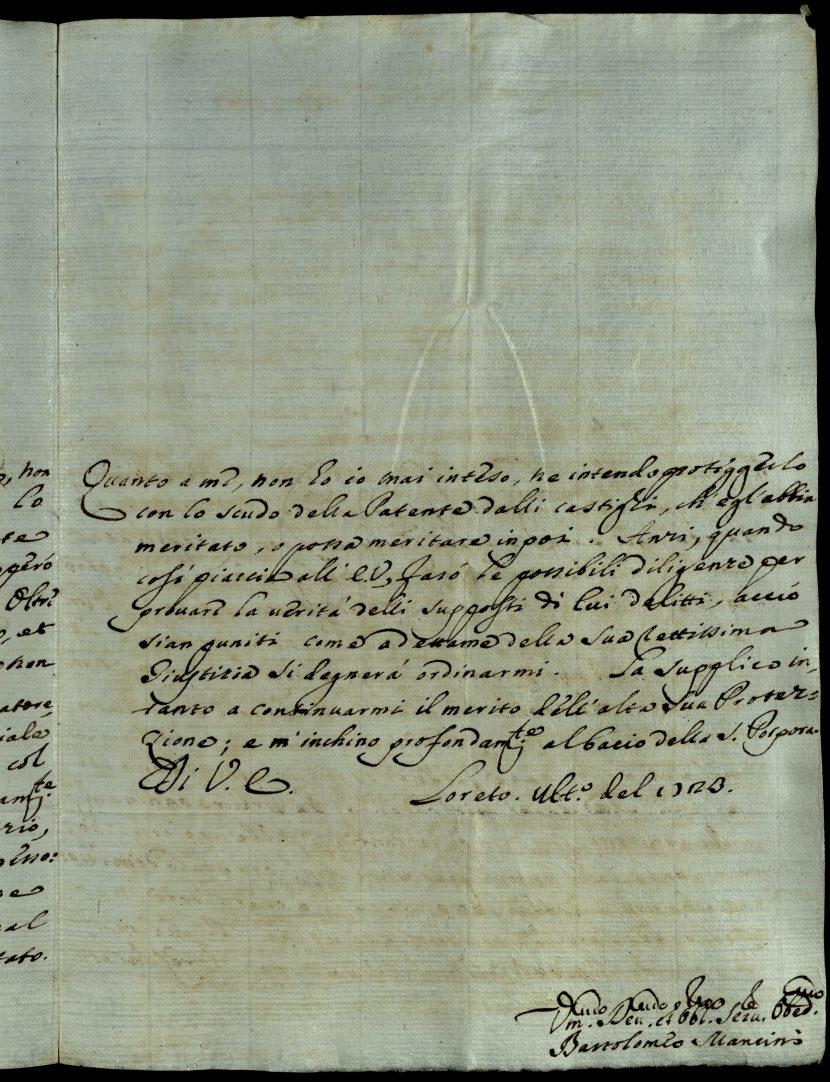 Quanto a me, non ho io mai inteso, ne intendo protiggerlo
con lo scudo della Patente dalli castighi, ch' egl' abbia
meritato, o possa meritare in poi. Anzi, quando
così piaccia all' E.V., farò le possibili diligenze per
provare la verità delli supposti di lui delitti, acciò
sian puniti come a dettame della sua rettissima
Giustizia si degnerà ordinarmi. La supplico in-
tanto a continuarmi il merito dell' alta sua Protez-
zione; e m' inchino profondam.te al bacio della S. Porpora.
Di V. E. Loreto. Ult.o del 1723.
Um.mo Dev.mo et Obl.mo Serv.re Obed.mo
Bartolomeo Mancini
non
lo
te
però
Oltre
, et
non
atore,
iale
col
am.te
rio,
e
al
tato.